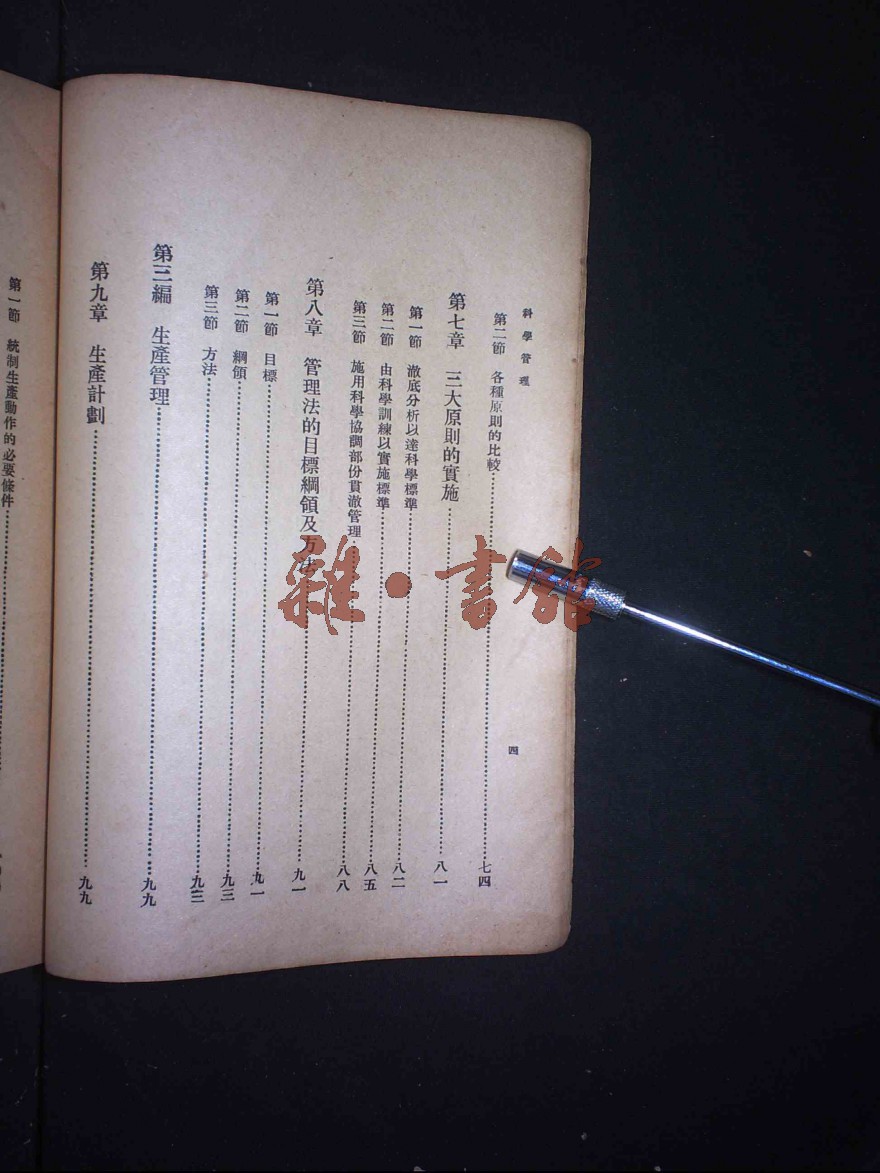 科學管理
四
第二節 各種原則的比較……七四
第七章 三大原則的實施……八一
第一節 澈底分析以達科學標準……八二
第二節 由科學訓練以實施標準……八五
第三節 施用科學協調部份貫澈管理……八八
第八章 管理法的目標綱領及方法……九一
第一節 目標……九一
第二節 綱領……九三
第三節 方法……九三
第三編 生產管理……九九
第九章 生產計劃……九九
第一節 統制生產動作的必要條件……
雜·書館